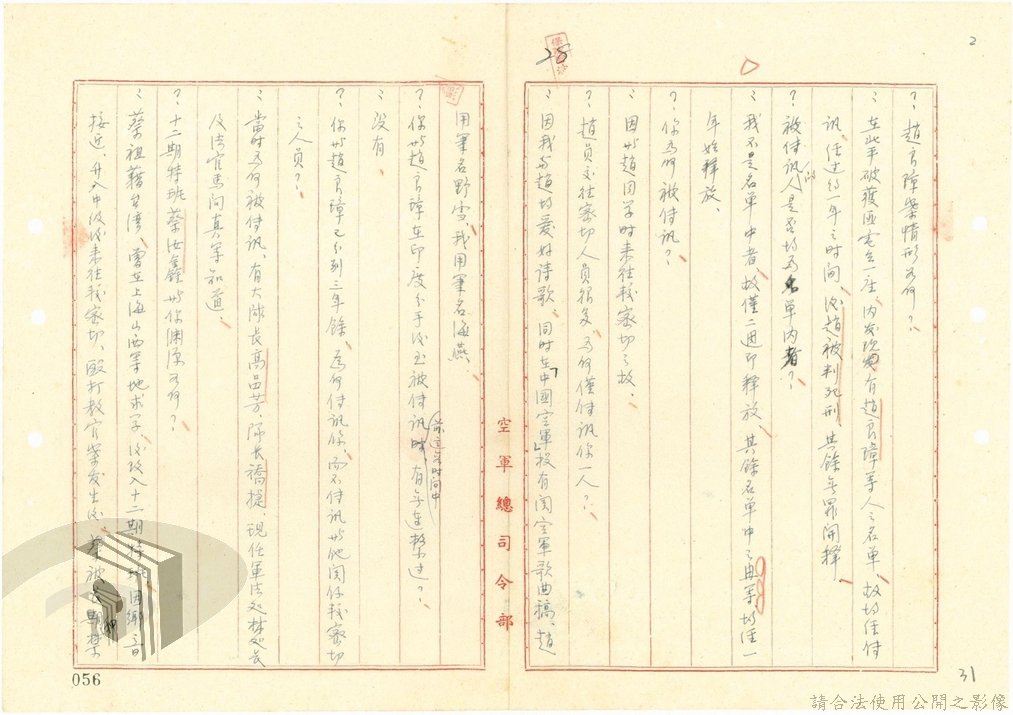 2
28
？趙良璋案情形為何？
：在北平破獲匪電台一座、內發現有趙良璋等人之名單、故均任偵
訊、經過約一年之時間、後趙被判死刑、其餘無罪開釋、
？被偵訊的人是否均為名單內者？
：我不是名單中者、故僅二週即釋放、其餘名單中之 等均經一
年始釋放、
？你為何被偵訊？
：因與趙同學時來往較密切之故、
？趙員來往密切人員很多、為何僅偵訊你一人？
：因我與趙均愛好詩歌、同時在「中國空軍」投有關空軍歌曲稿、趙
空軍總司令部
用筆名野雪、我用筆名海燕、
？你與趙良璋在印度分手後至被偵訊時、前這段時間中有無連繫過？
：沒有、
？你與趙良璋已分別三年餘、為何偵訊你、而不偵訊與他關係較密切
之人員？
：當時為何被偵訊、有大隊長高品芳、隊長喬捷、現任軍法處林處長
及法官馬問真等知道、
？十二期特班蔡汝鑫與你淵源為何？
：蔡祖籍台灣、曾在上海山西等地求學、後改入十二期特班、因鄉音
接近、升入中級後來往較密切、毆打教官案發生後、蔡被
056
31
請合法使用公開之影像